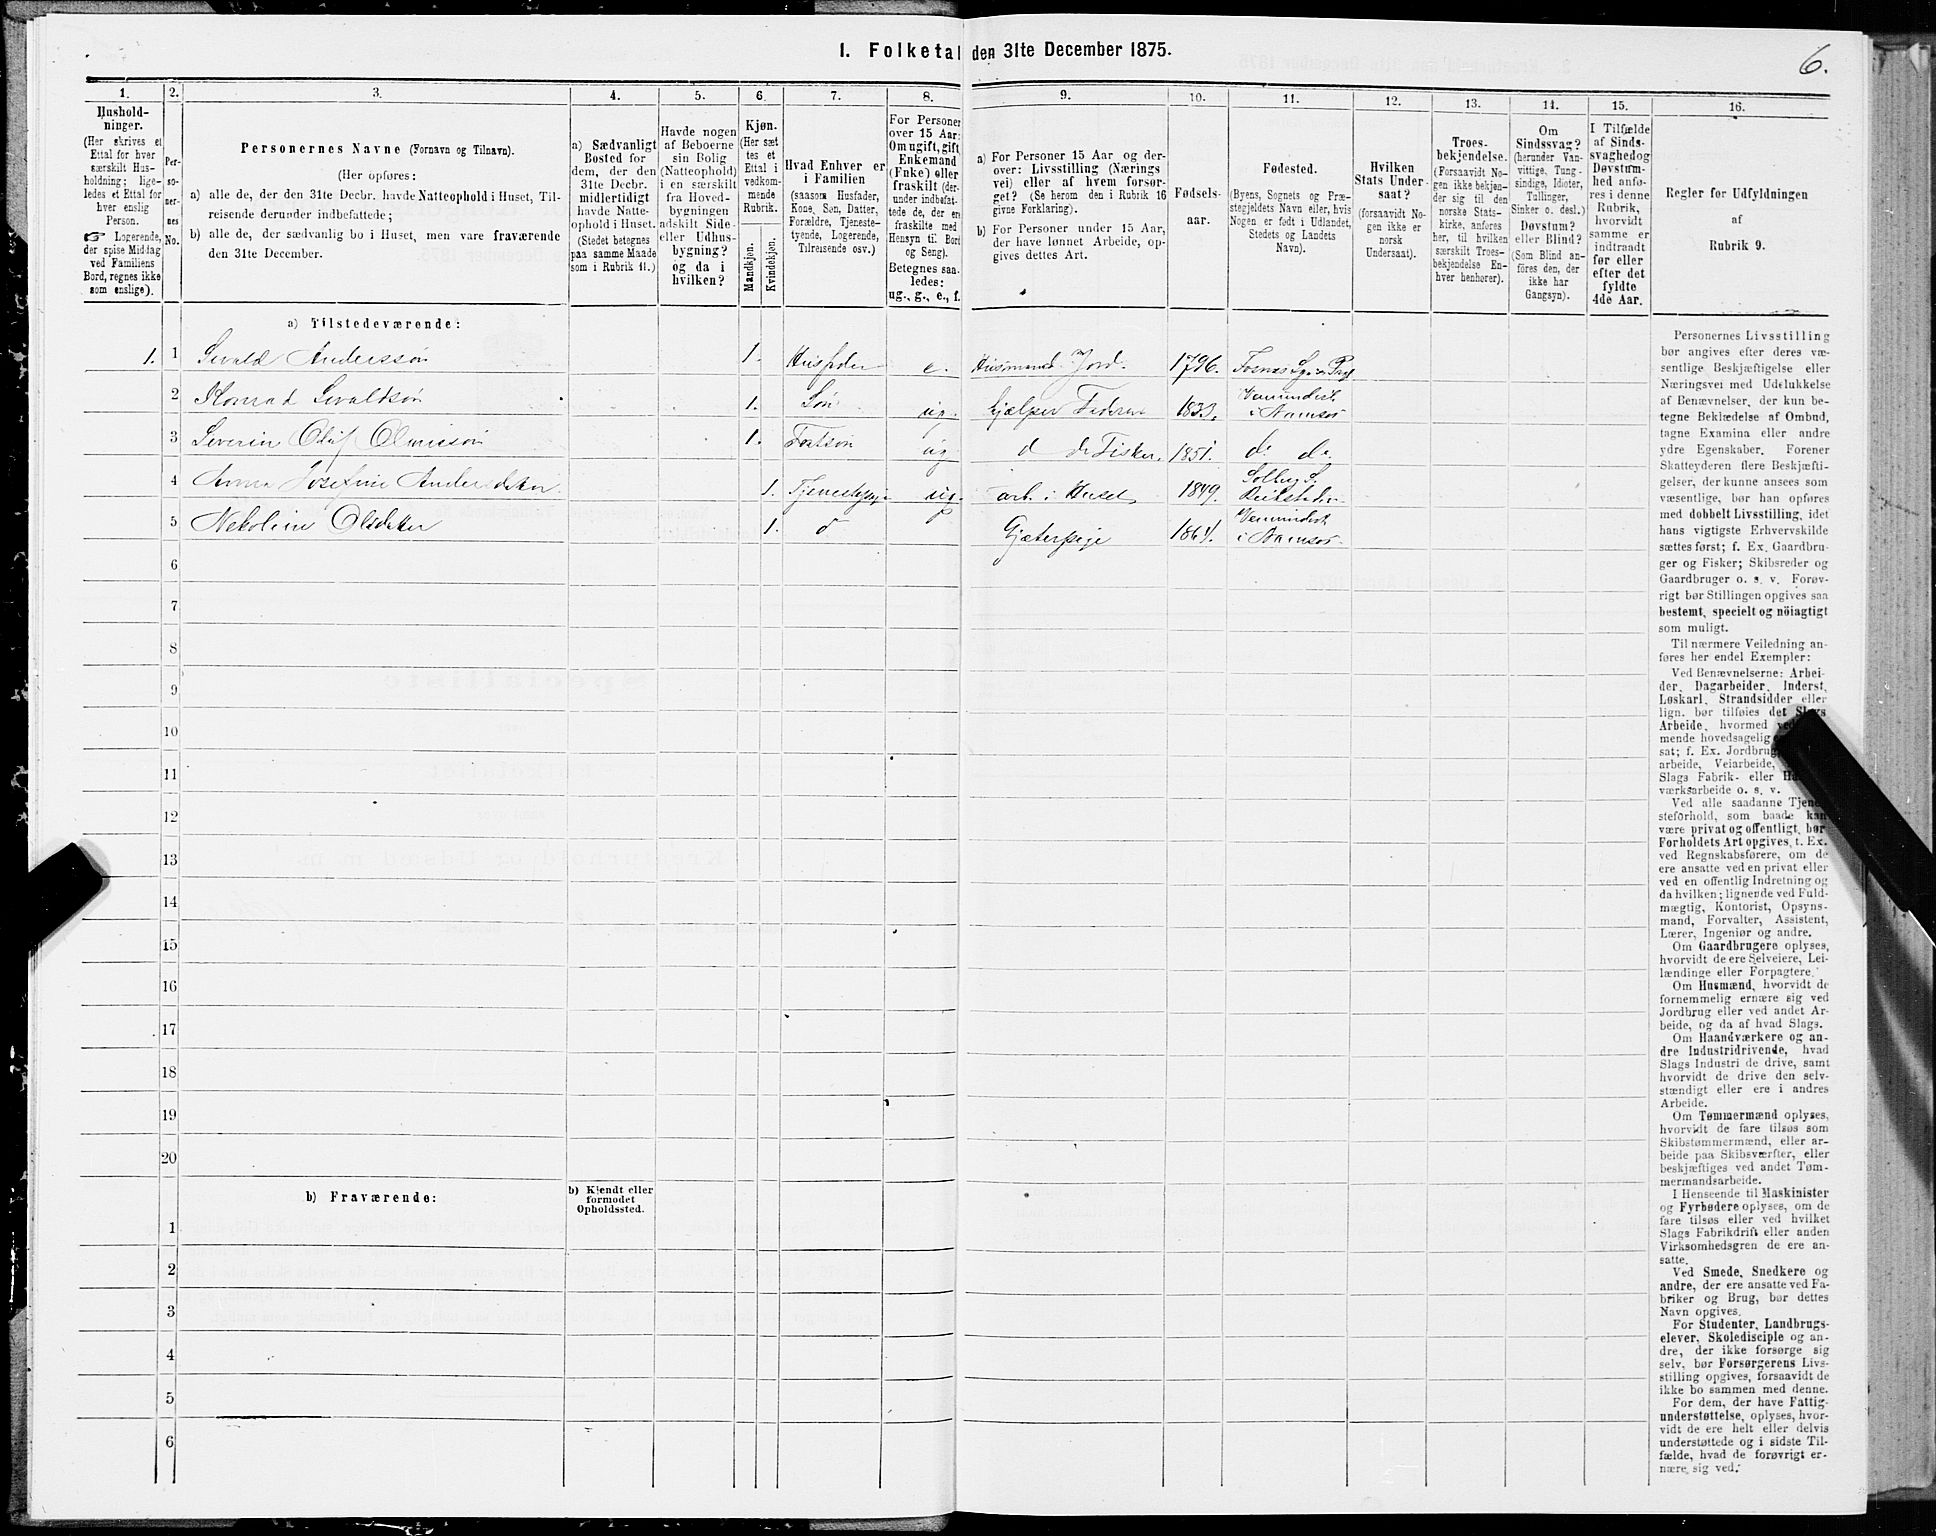 I. Folketal den 31te December 1875.
6.
1.
2.
3.
4.
5.
6.
7.
8.
9.
10.
11.
12.
13.
14.
15.
16.
Hushold-
ninger.
(Her skrives et
Ettal for hver
særskilt Hus-
holdning; lige-
ledes et Ettal for
hver enslig
Person.
☞ Logerende,
der spise Middag
ved Familiens
Bord, regnes ikke
som enslige).
Per-
so-
ner-
nes
No.
Personernes Navne (Fornavn og Tilnavn).
(Her opføres:
a) alle de, der den 31te Decbr. havde Natteophold i Huset, Til-
reisende derunder indbefattede;
b) alle de, der sædvanlig bo i Huset, men vare fraværende
den 31te December.
a) Sædvanligt
Bosted for
dem, der den
31te Decbr.
midlertidigt
havde Natte-
ophold i Huset.
(Stedet betegnes
paa samme Maade
som i Rubrik 11.)
Havde nogen
af Beboerne
sin Bolig
(Natteophold)
i en særskilt
fra Hoved-
bygningen
adskilt Side-
eller Udhus-
bygning?
og da i
hvilken?
Kjøn.
(Her sæt
tes et
Ettal i
vedkom-
mende
Rubrik.
Mandkjøn.
Kvindekjøn.
Hvad Enhver er
i Familien
(saasom Husfader,
Kone, Søn, Datter,
Forældre, Tjeneste-
tyende, Logerende,
Tilreisende osv.)
For Personer
over 15 Aar:
Om ugift, gift,
Enkemand
(Enke) eller
fraskilt (der-
under indbefat-
tede de, der ere
fraskilte med
Hensyn til Bord
og Seng).
Betegnes saa-
ledes:
ug., g., e., f.
a) For Personer 15 Aar og der-
over: Livsstilling (Nærings
vei) eller af hvem forsør-
get? (Se herom den i Rubrik 16
givne Forklaring).
b) For Personer under 15 Aar,
der have lønnet Arbeide, op-
gives dettes Art.
Fødsels-
aar.
Fødested.
(Byens, Sognets og Præ-
stegjeldets Navn eller, hvis
Nogen er født i Udlandet,
Stedets og Landets
Navn).
Hvilken
Stats Under-
saat?
(forsaavidt No-
gen ikke er
norsk
Undersaat).
Troes-
bekjendelse.
(Forsaavidt No-
gen ikke bekjen-
der sig til den
norske Stats-
kirke, anføres
her, til hvilken
særskilt Troes-
bekjendelse En-
hver henhører).
Om
Sindssvag?
(herunder Van-
vittige, Tung-
sindige, Idioter,
Tullinger,
Sinker o. desl.)
Døvstum?
eller Blind?
(Som Blind an-
føres den, der
ikke har
Gangsyn).
I Tilfælde
af Sinds-
svaghed og
Døvstum-
hed anfø-
res i denne
Rubrik,
hvorvidt
samme er
indtraadt
før eller
efter det
fyldte
4de Aar.
Regler for Udfyldningen
af
Rubrik 9.
a) Tilstedeværende:
1. 1 Sivald Anderssøn 1. Husfader e. Husmand Jord. 1796.
2 Konrad Sivaldsøn 1. Søn ug. hjælper Faderen 1833. Vemundvik i Namsos
3 Severin Oluf 1. ug d do Fisker. 1851. do do
4 Anna Josefine Andersdatter 1. ug. arb. i Huset 1849.
5 Nekoline Olsdatter 1. d Gjæterpige 1864. Vemundvik i Namsos
6
7
8
9
10
11
12
13
14
15
16
17
18
19
20
b) Fraværende:
b) Kjendt eller
formodet
Opholdssted.
1
2
3
4
5
6
Personernes Livsstilling
bør angives efter deres væ-
sentlige Beskjæftigelse eller
Næringsvei med Udelukkelse
af Benævnelser, der kun be-
tegne Beklædelse af Ombud,
tagne Examina eller andre
ydre Egenskaber. Forener
Skatteyderen flere Beskjæfti-
gelser, der kunne ansees som
væsentlige, bør han opføres
med dobbelt Livsstilling, idet
hans vigtigste Erhvervskilde
sættes først; f. Ex. Gaardbru-
ger og Fisker; Skibsreder og
Gaardbruger o. s. v. Forøv-
rigt bør Stillingen opgives saa
bestemt, specielt og nøiagtigt
som muligt.
Til nærmere Veiledning an-
føres her endel Exempler:
Ved Benævnelserne: Arbei-
der, Dagarbeider, Inderst,
Løskarl, Strandsidder eller
lign. bør tilføies det Slags
Arbeide, hvormed
mende hovedsagelig
sat; f. Ex. Jordbrug
arbeide, Veiarbeide,
Slags Fabrik- eller
værksarbeide o. s. v.
Ved alle saadanne Tjene-
steforhold, som baade kan
være privat og offentligt, bør
Forholdets Art opgives, t. Ex.
ved Regnskabsførere, om de
ere ansatte ved en privat eller
ved en offentlig Indretning og
da hvilken; lignende ved Fuld-
mægtig, Kontorist, Opsyns-
mand, Forvalter, Assistent,
Lærer, Ingeniør og andre.
Om Gaardbrugere oplyses,
hvorvidt de ere Selveiere, Lei-
lændinge eller Forpagtere.
Om Husmænd, hvorvidt de
fornemmelig ernære sig ved
Jordbrug eller ved andet Ar-
beide, og da af hvad Slags.
Om Haandværkere og an-
dre Industridrivende, hvad
Slags Industri de drive, samt
hvorvidt de drive den selv-
stændigt eller ere i andres
Arbeide.
Om Tømmermænd oplyses,
hvorvidt de fare tilsøs som
Skibstømmermænd, eller ar-
beide paa Skibsværfter, eller
beskjæftiges ved andet Tøm-
mermandsarbeide.
I Henseende til Maskinister
og Fyrbødere oplyses, om de
fare tilsøs eller ved hvilket
Slags Fabrikdrift eller anden
Virksomhedsgren de ere an-
satte.
Ved Smede, Snedkere og
andre, der ere ansatte ved Fa-
briker og Brug, bør dettes
Navn opgives.
For Studenter, Landbrugs-
elever, Skoledisciple og an-
dre, der ikke forsørge sig
selv, bør Forsørgerens Livs-
stilling opgives, forsaavidt de
ikke bo sammen med denne.
For dem, der have Fattig-
understøttelse, oplyses, hvor-
vidt de ere helt eller delvis
understøttede og i sidste Til-
fælde, hvad de forøvrigt er-
nære sig ved.